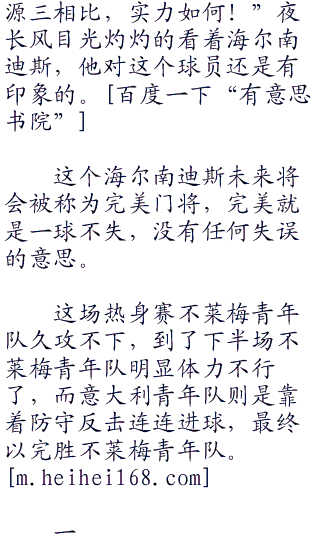 源三相比，实力如何！”夜
长风目光灼灼的看着海尔南
迪斯，他对这个球员还是有
印象的。[百度一下“有意思
书院”]
这个海尔南迪斯未来将
会被称为完美门将，完美就
是一球不失，没有任何失误
的意思。
这场热身赛不莱梅青年
队久攻不下，到了下半场不
莱梅青年队明显体力不行
了，而意大利青年队则是靠
着防守反击连连进球，最终
以完胜不莱梅青年队。
[m.heihei168.com]
一